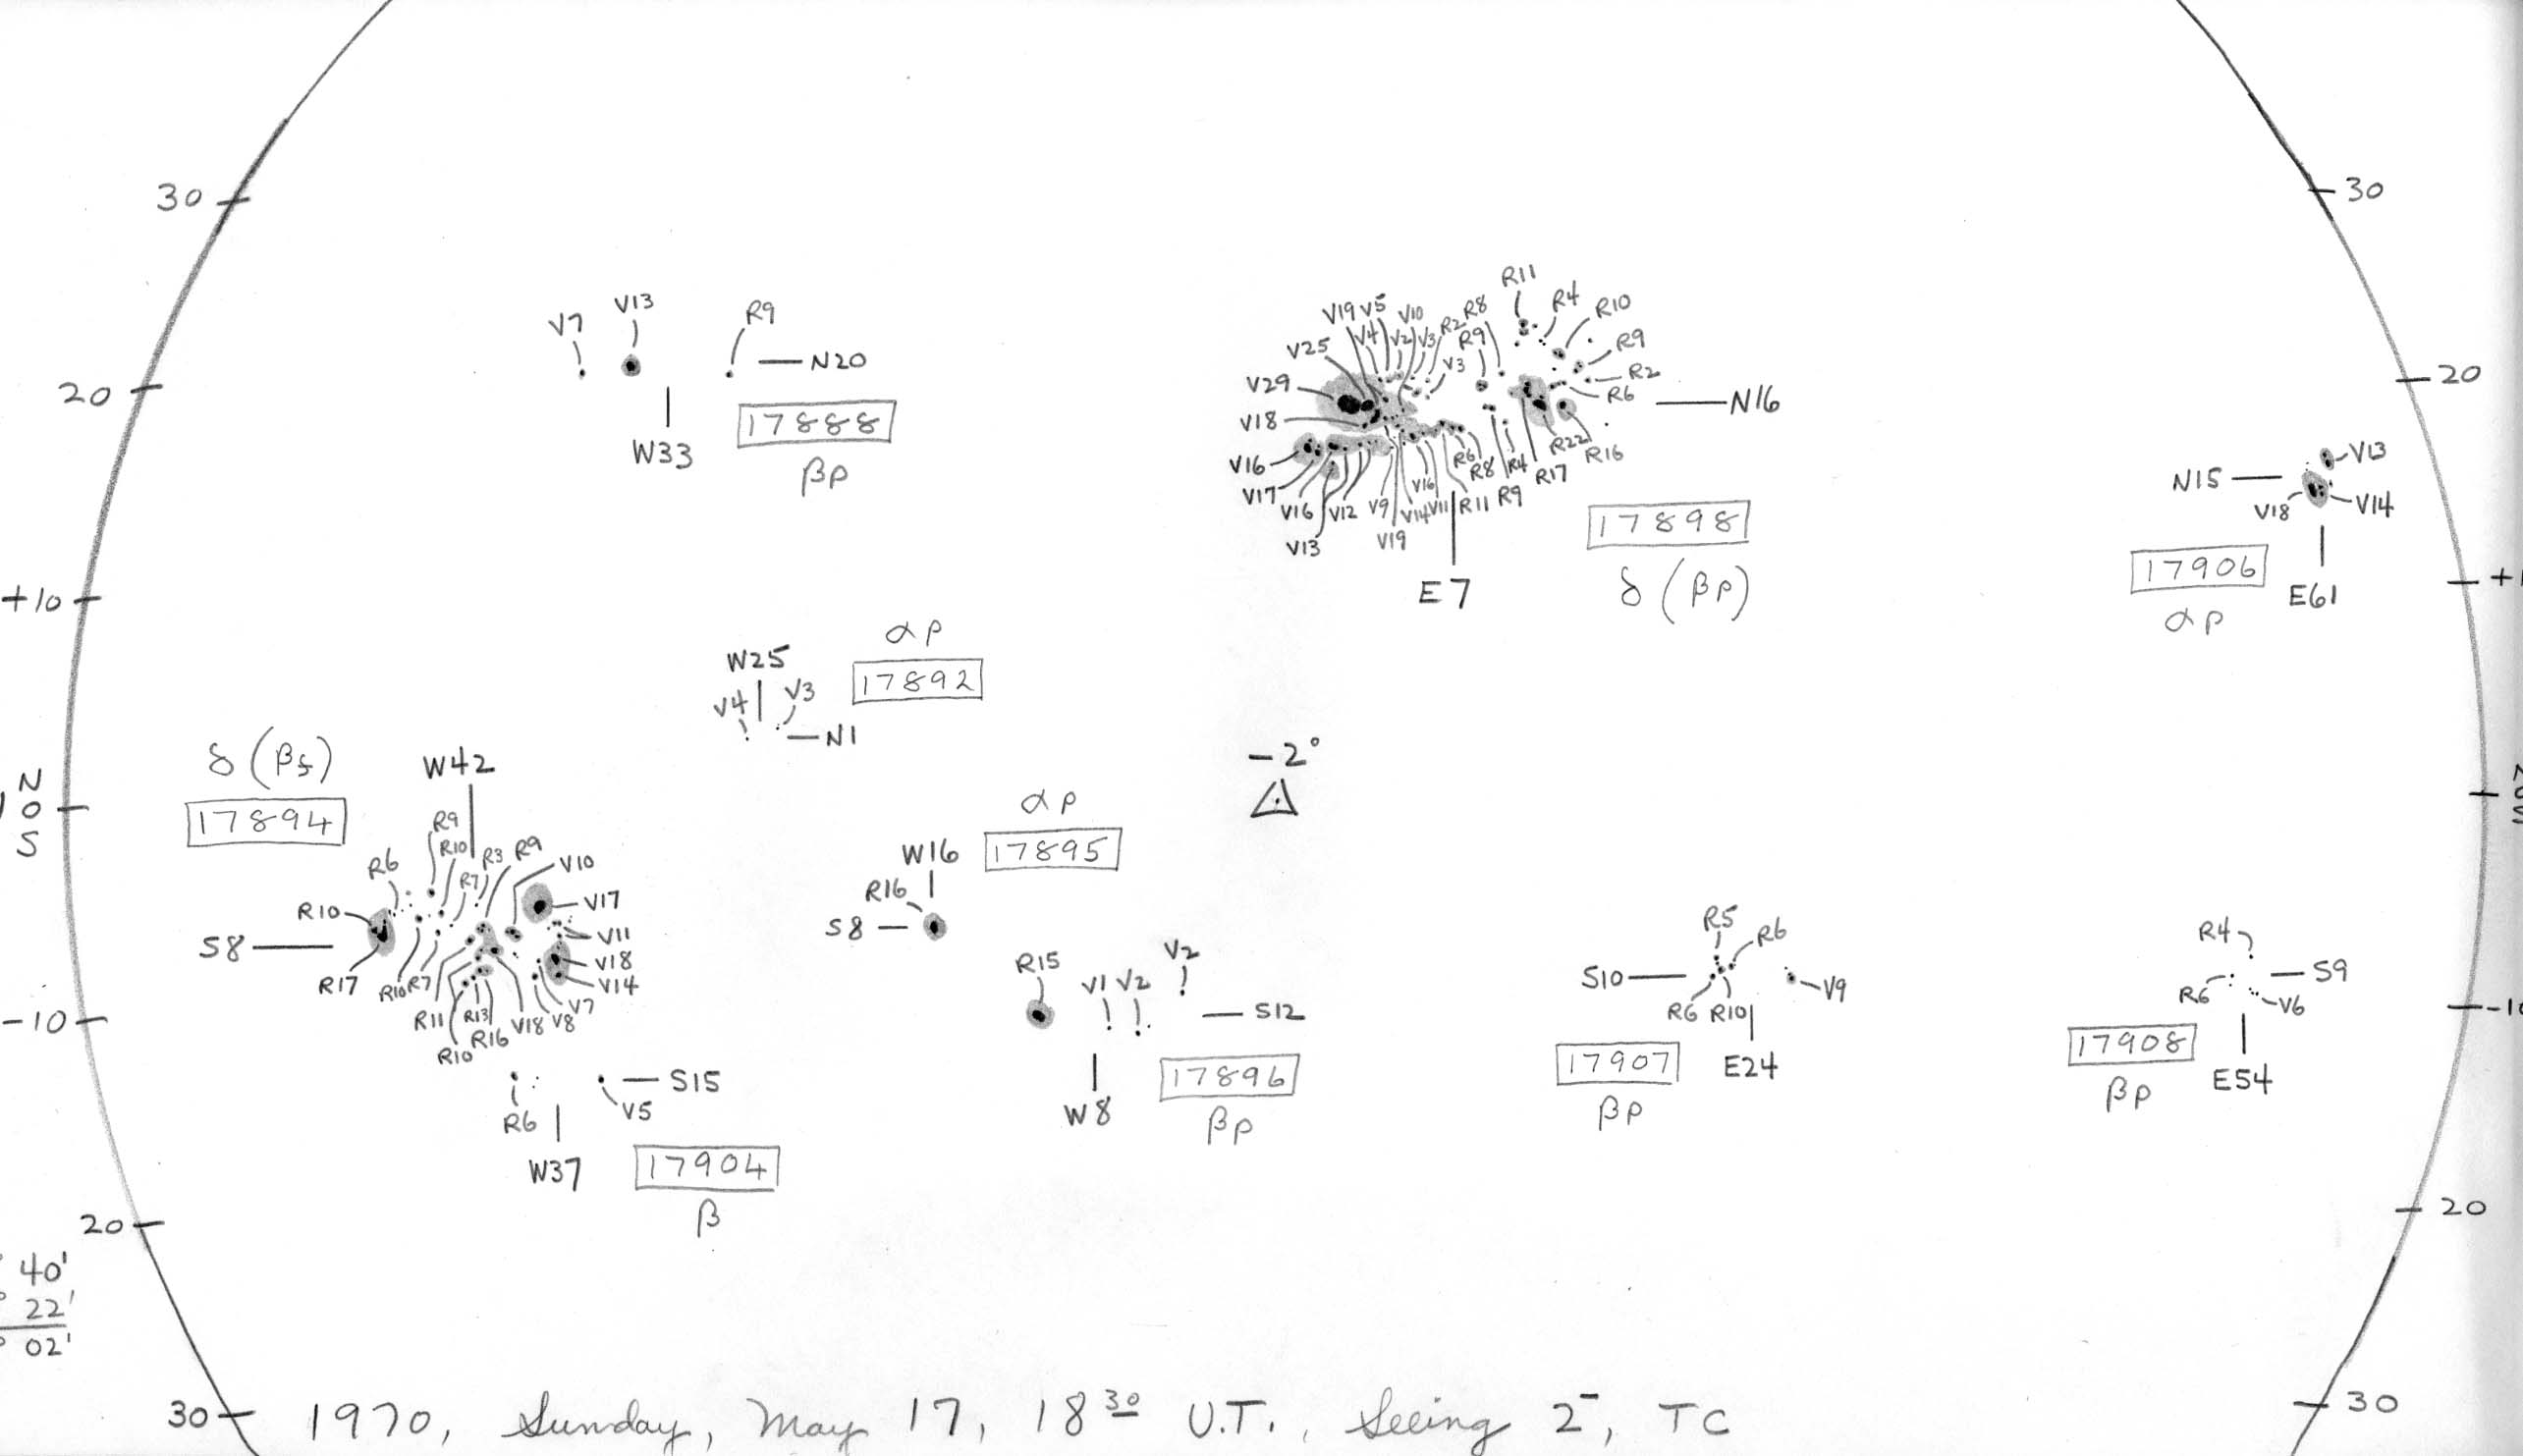 30
30
R11
V13
V7
R9
N20
W33
17888
βp
V19 V5 V10 R2 R8
R4
R10
V4 V2 V3 R9
R9
V25
V3
R2
V29
R6
N16
V18
R22
R16
V16
R6
R8 R4 R17
V17
V16
V16 V12 V9 V14 V11 R11 R9
V13
V19
17898
E7
δ (βp)
20
20
V13
N15
V18
V14
17906
E61
αp
+10
+1
αp
W25
17892
V4
V3
N1
-2°
N
0
S
N
0
S
δ (βf)
W42
17894
R9
R10
R3
R9
V10
R6
R7
V17
R10
V11
S8
V18
R17
R10
R7
V14
R11
R13
V18
V8
V7
R16
R10
αp
W16
17895
R16
S8
R15
V1
V2
V2
S12
W8
17896
βp
R5
R6
S10
V9
R6
R10
17907
E24
βp
R4
S9
R6
V6
17908
E54
βp
-10
-10
S15
R6
V5
W37
17904
β
20
20
40'
22'
02'
30
30
1970, Sunday, May 17, 18 30 U.T., Seeing 2-, TC